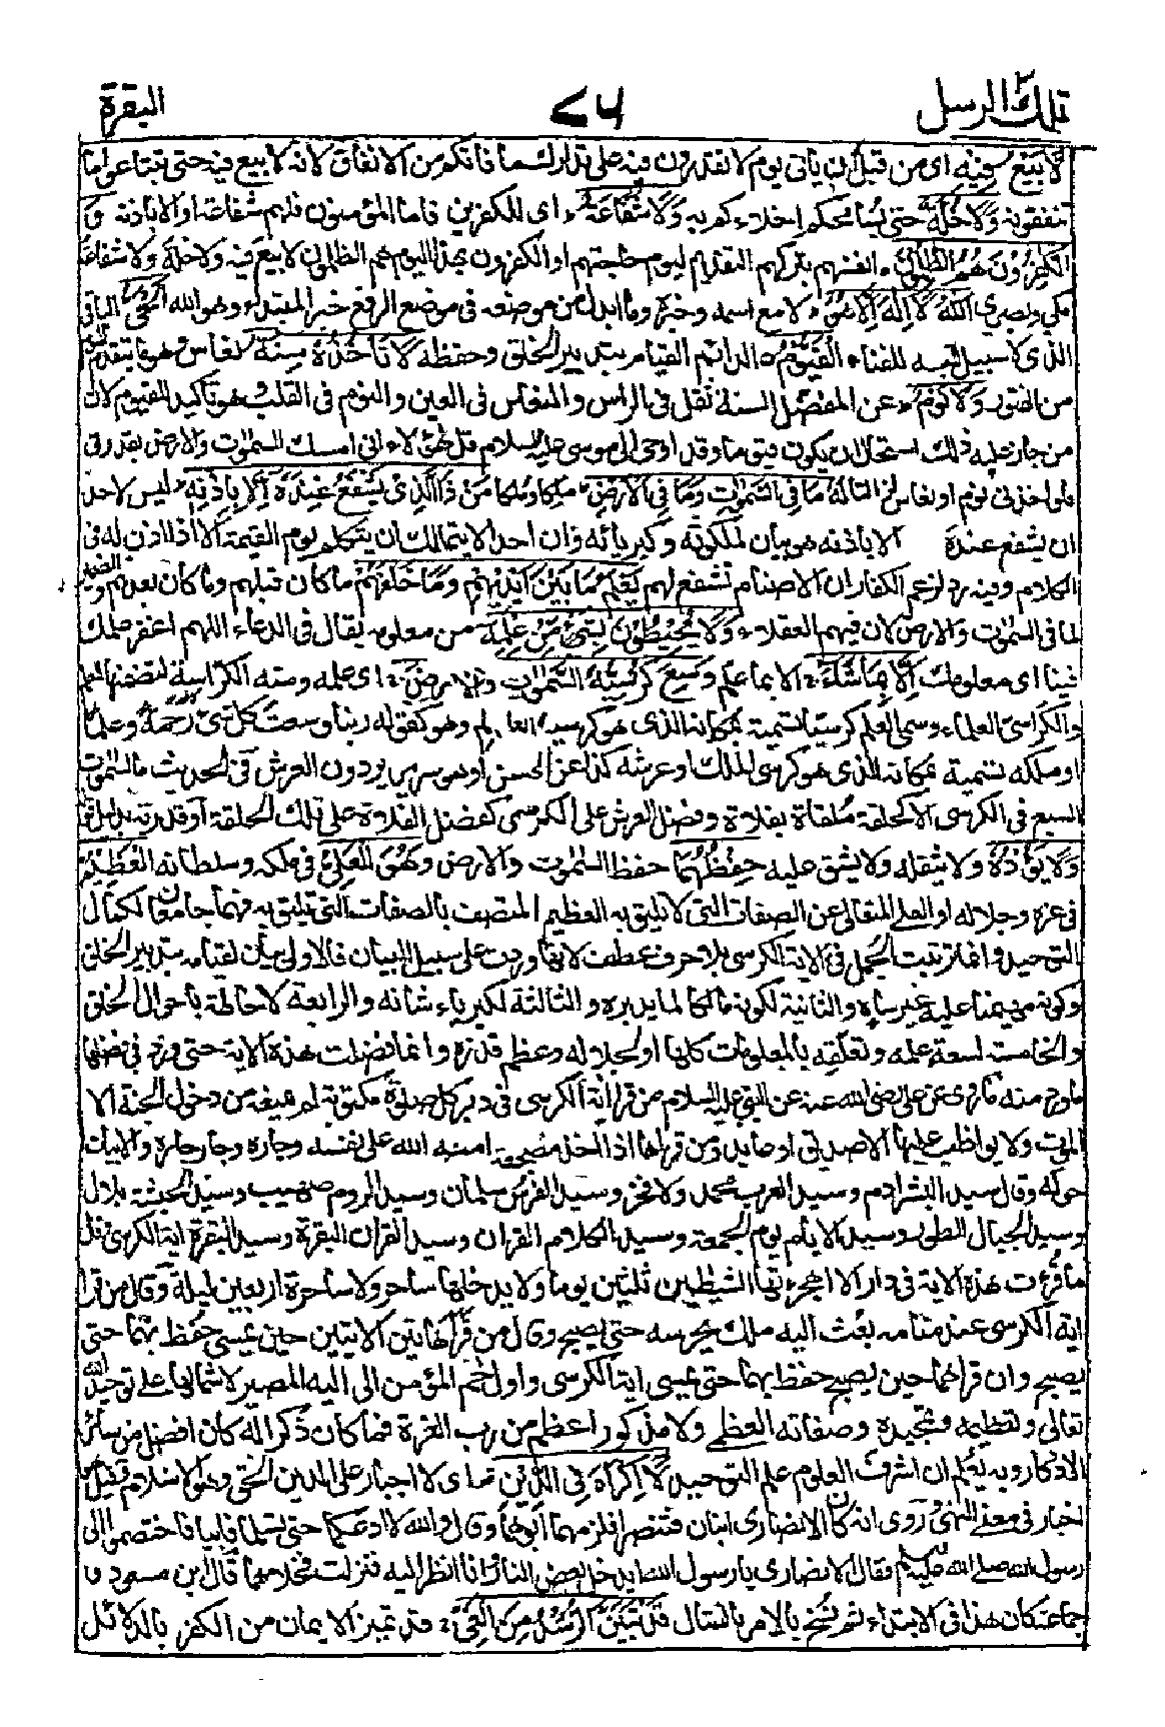 تلك الرسل ٧٤ البقرة
لا بيع فيه اى من قبل ان ياتى يوم لا تقدرون فيه على تدارك ما فاتكم من الانفاق لانه لا بيع فيه حتى تبتاعوا ما
تنفقونه وَلَا خُلَّةٌ حتى يسامحكم اخلاءكم به وَّلَا شَفَاعَةٌ ؕ اى للكفرين فاما المؤمنون فلهم شفاعة او الا باذنه وَ
الْكٰفِرُوْنَ هُمُ الظّٰلِمُوْنَ ۔ انفسهم بتركهم التقديم ليوم حاجتهم او الكفرون بهذا اليوم هم الظالمون لا بيع فيه ولا خلة ولا شفاعة
مكى وبصرى اَللّٰهُ لَاۤ اِلٰهَ اِلَّا هُوَ ۚ لا مع اسمه وخبره وما ابدل من موضعه فى موضع الرفع خبر المبتدأ وهو الله اَلْحَىُّ الباقى
الذى لا سبيل عليه للفناء الْقَيُّوْمُ ۚ الدائم القيام بتدبير الخلق وحفظه لَا تَاْخُذُهٗ سِنَةٌ نعاس وهو ما يتقدم النوم
من الفتور وَّلَا نَوْمٌ ؕ عن المفضل السنة ثقل فى الراس والنعاس فى العين والنوم فى القلب وهو تاكيد للقيوم لان
من جاز عليه ذلك استحال ان يكون قيوما وقد اوحى الى موسى عليه السلام قل لهؤلاء انى امسك السموات والارض بقدرتى
فلو اخذنى نوم او نعاس لزالتا لَهٗ مَا فِى السَّمٰوٰتِ وَمَا فِى الْاَرْضِ ؕ ملكا وملكا مَنْ ذَا الَّذِىْ يَشْفَعُ عِنْدَهٗۤ اِلَّا بِاِذْنِهٖ ؕ ليس لاحد
ان يشفع عنده الا باذنه هو بيان لملكوته وكبريائه وان احدا لا يتمالك ان يتكلم يوم القيمة الا اذا اذن له فى
الكلام وفيه رد لزعم الكفار ان الاصنام تشفع لهم يَعْلَمُ مَا بَيْنَ اَيْدِيْهِمْ وَمَا خَلْفَهُمْ ما كان قبلهم وما كان بعدهم والضمير
لما فى السموات والارض لان فيهم العقلاء وَلَا يُحِيْطُوْنَ بِشَىْءٍ مِّنْ عِلْمِهٖۤ من معلومه يقال فى الدعاء اللهم اغفر علمك
فينا اى معلومك اِلَّا بِمَا شَآءَ ۚ الا بما علم وَسِعَ كُرْسِيُّهُ السَّمٰوٰتِ وَالْاَرْضَ ۚ اى علمه ومنه الكراسة لتضمنها العلم
والكراسى العلماء وسمى العلم كرسيا تسمية بمكانه الذى هو كرسى العالم وهو كقوله ربنا وسعت كل شئ رحمة وعلما
او ملكه تسمية بمكانه الذى هو كرسى الملك او عرشه كذا عن الحسن او هو سرير دون العرش فى الحديث ما السموات
السبع فى الكرسى الا كحلقة ملقاة بفلاة وفضل العرش على الكرسى كفضل الفلاة على تلك الحلقة او قدرته بدليل قوله
وَلَا يَـُٔوْدُهٗ ولا يثقله ولا يشق عليه حِفْظُهُمَا حفظ السموات والارض وَهُوَ الْعَلِىُّ فى ملكه وسلطانه الْعَظِيْمُ
فى عزه وجلاله او العلى المتعالى عن الصفات التى لا يليق به العظيم المتصف بالصفات التى تليق به فهما جامعان لكمال
التوحيد وانما ترتبت الجمل فى الاية الكرسى بلا حرف عطف لانها وردت على سبيل البيان فالاولى بيان لقيامه بتدبير الخلق
وكونه مهيمنا عليه غير ساه والثانية لكونه مالكا لما يدبره والثالثة لكبرياء شانه والرابعة لاحاطته باحوال الخلق
والخامسة لسعة علمه وتعلقه بالمعلومات كلها او لجلاله وعظم قدره وانما فضلت هذه الاية حتى ورد فى فضلها
ما ورد منه ما روى عن على رضى الله عنه عن النبى عليه السلام من قرا اية الكرسى فى دبر كل صلوة مكتوبة لم يمنعه من دخول الجنة الا
الموت ولا يواظب عليها الا صديق او عابد ومن قراها اذا اخذ مضجعه امنه الله على نفسه وجاره وجار جاره والابيات
حوله وقال سيد البشر ادم وسيد العرب محمد ولا فخر وسيد الفرس سلمان وسيد الروم صهيب وسيد الحبشة بلال
وسيد الجبال الطور وسيد الايام يوم الجمعة وسيد الكلام القران وسيد القران البقرة وسيد البقرة اية الكرسى وقال
ما قرئت هذه الاية فى دار الا اهتجرتها الشيطين ثلثين يوما ولا يدخلها ساحر ولا ساحرة اربعين ليلة وقال من قرا
اية الكرسى عند منامه بعث اليه ملك يحرسه حتى يصبح وقال من قرا هاتين الايتين حين يمسى حفظ بهما حتى
يصبح وان قراهما حين يصبح حفظ بهما حتى يمسى اية الكرسى واول حم المؤمن الى اليه المصير لاشتمالها على توحيد الله
تعالى وتعظيمه وتمجيده وصفاته العظمى ولا مذكور اعظم من رب العزة فما كان ذكرا له كان افضل من سائر
الاذكار وبه يعلم ان اشرف العلوم علم التوحيد لَاۤ اِكْرَاهَ فِى الدِّيْنِ قف اى لا اجبار على الدين الحق وهو الاسلام وقيل هو
اخبار فى معنى النهى وروى انه كان لانصارى ابنان فتنصرا فلزمهما ابوهما وقال والله لا ادعكما حتى تسلما فابيا فاختصموا الى
رسول الله صلى الله عليه وسلم فقال الانصارى يا رسول الله ايدخل بعضى النار وانا انظر اليه فنزلت فخلاهما قال ابن مسعود و
جماعة كان هذا فى الابتداء ثم نسخ بالامر بالقتال قَدْ تَّبَيَّنَ الرُّشْدُ مِنَ الْغَىِّ ۚ قد تميز الايمان من الكفر بالدلائل